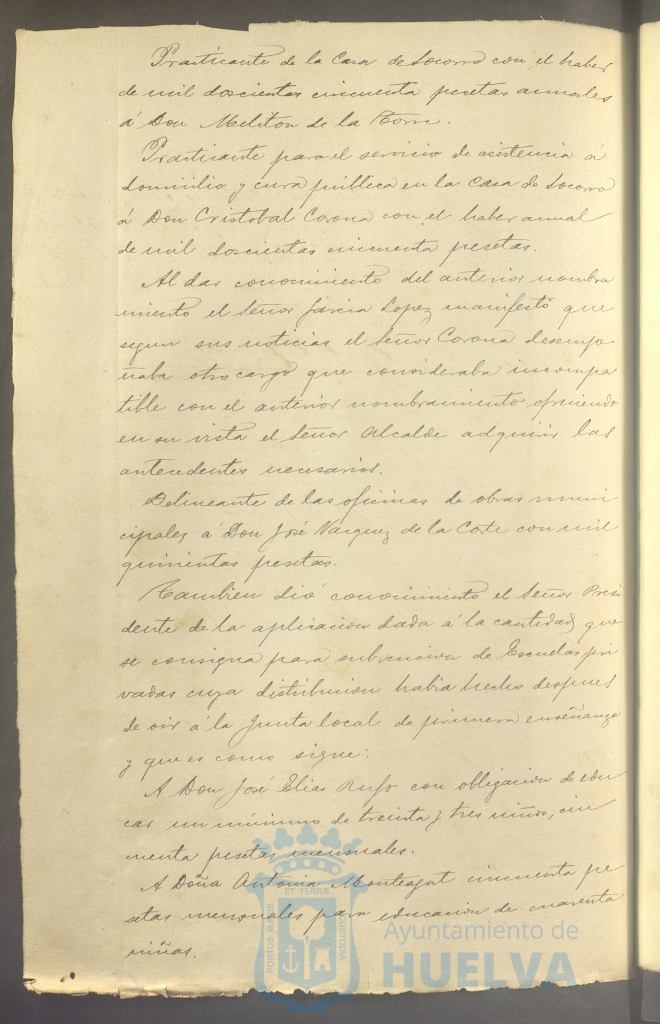 Practicante de la Casa de Socorro con el haber
de mil doscientas cincuenta pesetas anuales
á Don Meliton de la Torre.
Practicante para el servicio de asistencia á
domicilio y cura pública en la Casa de Socorro
á Don Cristobal Corona con el haber anual
de mil doscientas cincuenta pesetas.
Al dar conocimiento del anterior nombra
miento el Señor Garcia Lopez manifestó que
segun sus noticias el Señor Corona desempe
ñaba otro cargo que consideraba incompa
tible con el anterior nombramiento ofreciendo
en su vista el Señor Alcalde adquirir los
antecedentes necesarios.
Delineante de las oficinas de obras muni
cipales á Don José Vazquez de la Corte con mil
quinientas pesetas.
Tambien dió conocimiento el Señor Presi
dente de la aplicacion dada á la cantidad que
se consigna para subvencion de Escuelas pri
vadas cuya distribucion habia hecho despues
de oir á la Junta local de primera enseñanza
y que es como sigue:
A Don José Elias Rufo con obligacion de edu
car un minimo de treinta y tres niños, cin
cuenta pesetas mensuales.
A Doña Antonia Monteagut cincuenta pe
setas mensuales para educacion de cuarenta
niñas.
PORTUS MARIS ET TERRÆ CUSTODIA
Ayuntamiento de
HUELVA